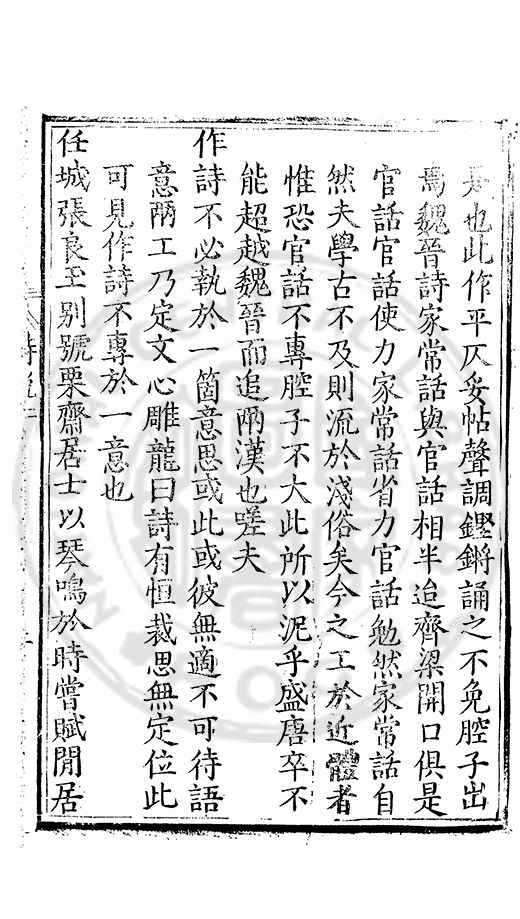 是也此作平仄妥帖聲調鏗鏘誦之不免腔子出
焉魏晉詩家常話與官話相半迨齊梁開口俱是
官話官話使力家常話省力官話勉然家常話自
然夫學古不及則流於淺俗矣今之工於近體者
惟恐官話不專腔子不大此所以泥乎盛唐卒不
能超越魏晉而追兩漢也嗟夫
作詩不必執於一箇意思或此或彼無適不可待語
意兩工乃定文心雕龍曰詩有恒裁思無定位此
可見作詩不專於一意也
任城張良玉別號栗齋居士以琴鳴於時嘗賦閒居